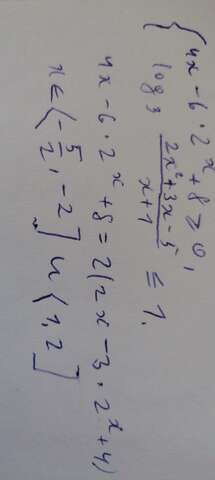 { 4x - 6 · 2^x + 8 ≥ 0,
log_3 (2x^2 + 3x - 5)/(x + 1) ≤ 1.
4x - 6 · 2^x + 8 = 2(2x - 3 · 2^x + 4)
x ∈ (-5/2, -2] ∪ (1, 2]